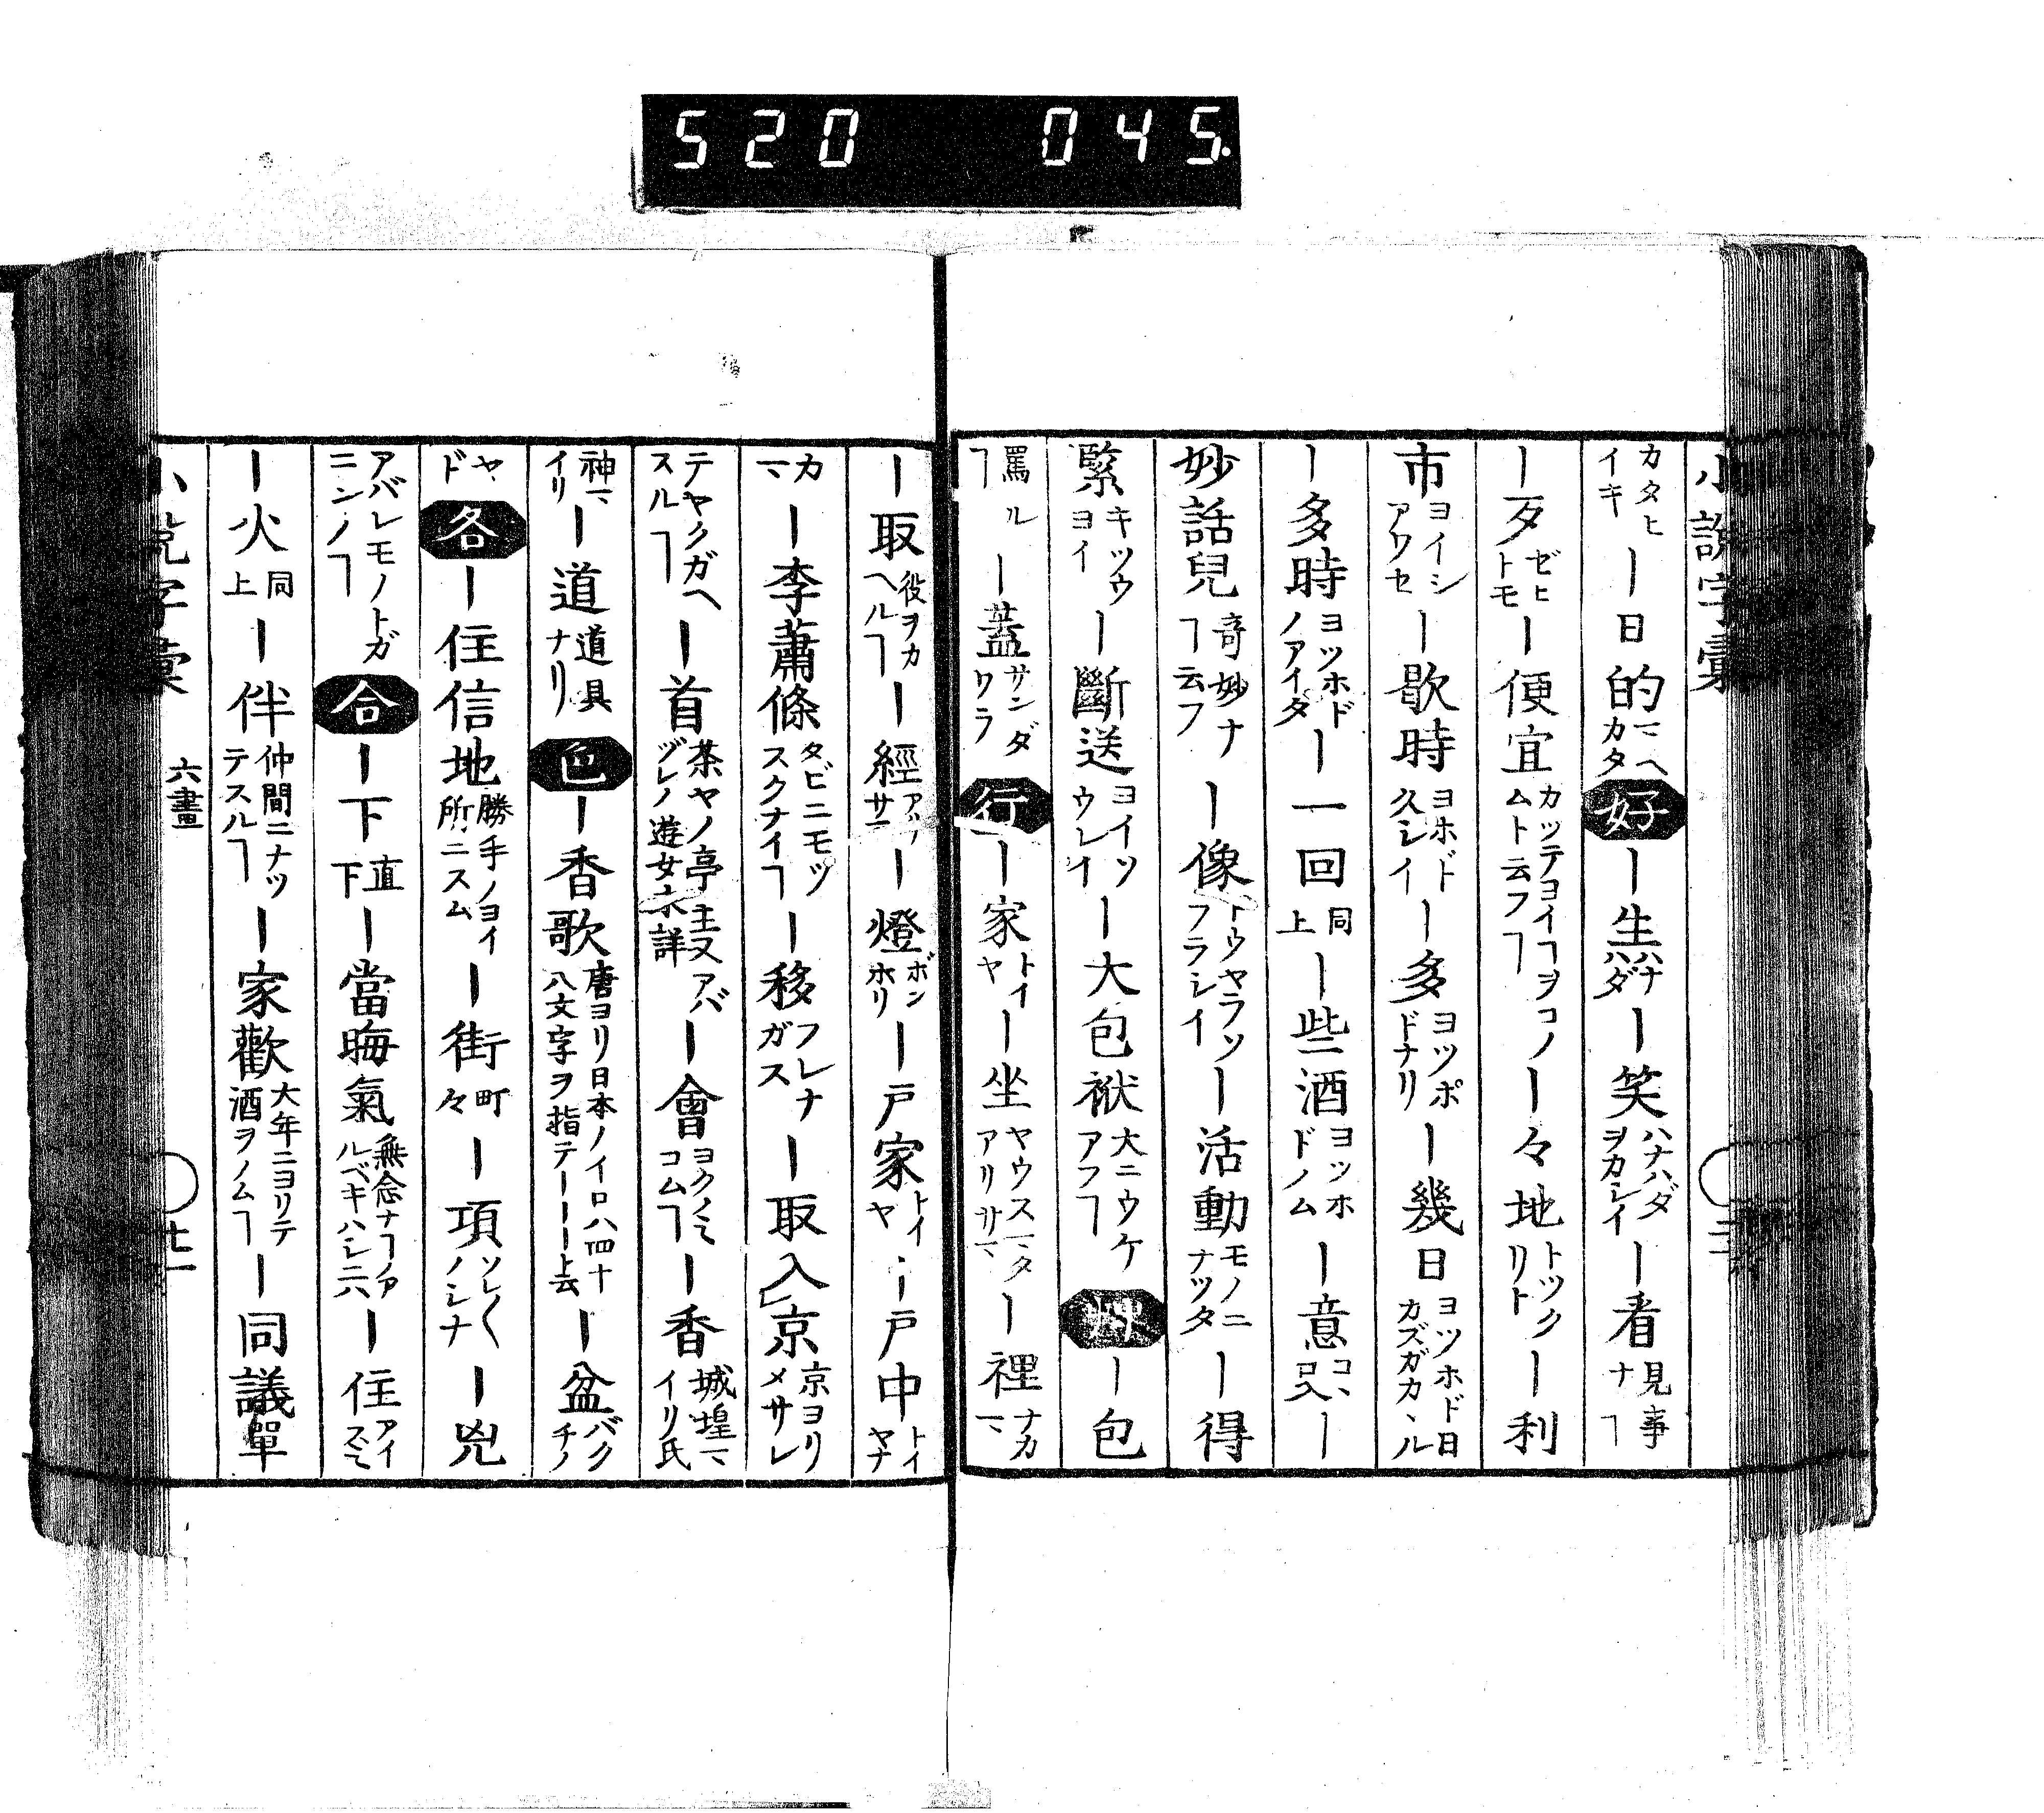 520 045.
小說字彙
カタヒイキ ー日的 マヘカタ 好 ー生 ハナハダ ー笑 ハナハダヲカシイ ー看 見事ナヿ
ー歹 ゼヒトモ ー便宜 カツテヨイヿヲコノムト云フヿ ー々地 トツクリト ー利
市 ヨイシアワセ ー歇時 ヨホド久シイ ー多 ヨツポドナリ ー幾日 ヨツホド日カズガカヽル
ー多時 ヨツホドノアイダ ー一回 同上 ー些酒 ヨツホドノム ー意 ー
妙話兒 竒妙ナヿ云フ ー像 トウヤラソフラシイ ー活動 モノニナツタ ー得
緊 キツウヨイ ー斷送 ヨイソウレイ ー大包袱 大ニウケアフヿ ー包
罵ルヿ ー蓋 サンダワラ 行 ー家 トイヤ ー坐 ヤウスマタアリサマ ー裡 ナカマ
ー取 役ヲカヘルヿ ー經 ー燈 ボンホリ ー戸家 トイヤ ー戸中 トイヤナ
カマ ー李蕭條 タビニモツスクナイヿ ー移 フレナガス ー取入京 京ヨリメサレ
テヤクガヘスルヿ ー首 茶ヤノ亭主又アバヅレノ遊女未詳 ー會 ヨクノミコムヿ ー香 城埕マイリ氏
神マイリ ー道 道具ナリ 色 ー香歌 唐ヨリ日本ノイロハ四十八文字ヲ指テーーート云 ー盆 バクチノ
ヤド 各 ー住信地 勝手ノヨイ所ニスム ー街 町々 ー項 ソレ〱ノシナ ー兇
アバレモノトガニンノヿ 合 ー下 直下 ー當晦氣 無念ナヿノアルベキハシニ六 ー住 アイスミ
ー火 同上 ー伴 仲間ニナツテスルヿ ー家歡 大年ニヨリテ酒ヲノムヿ ー同議單
小說字彙 六畫